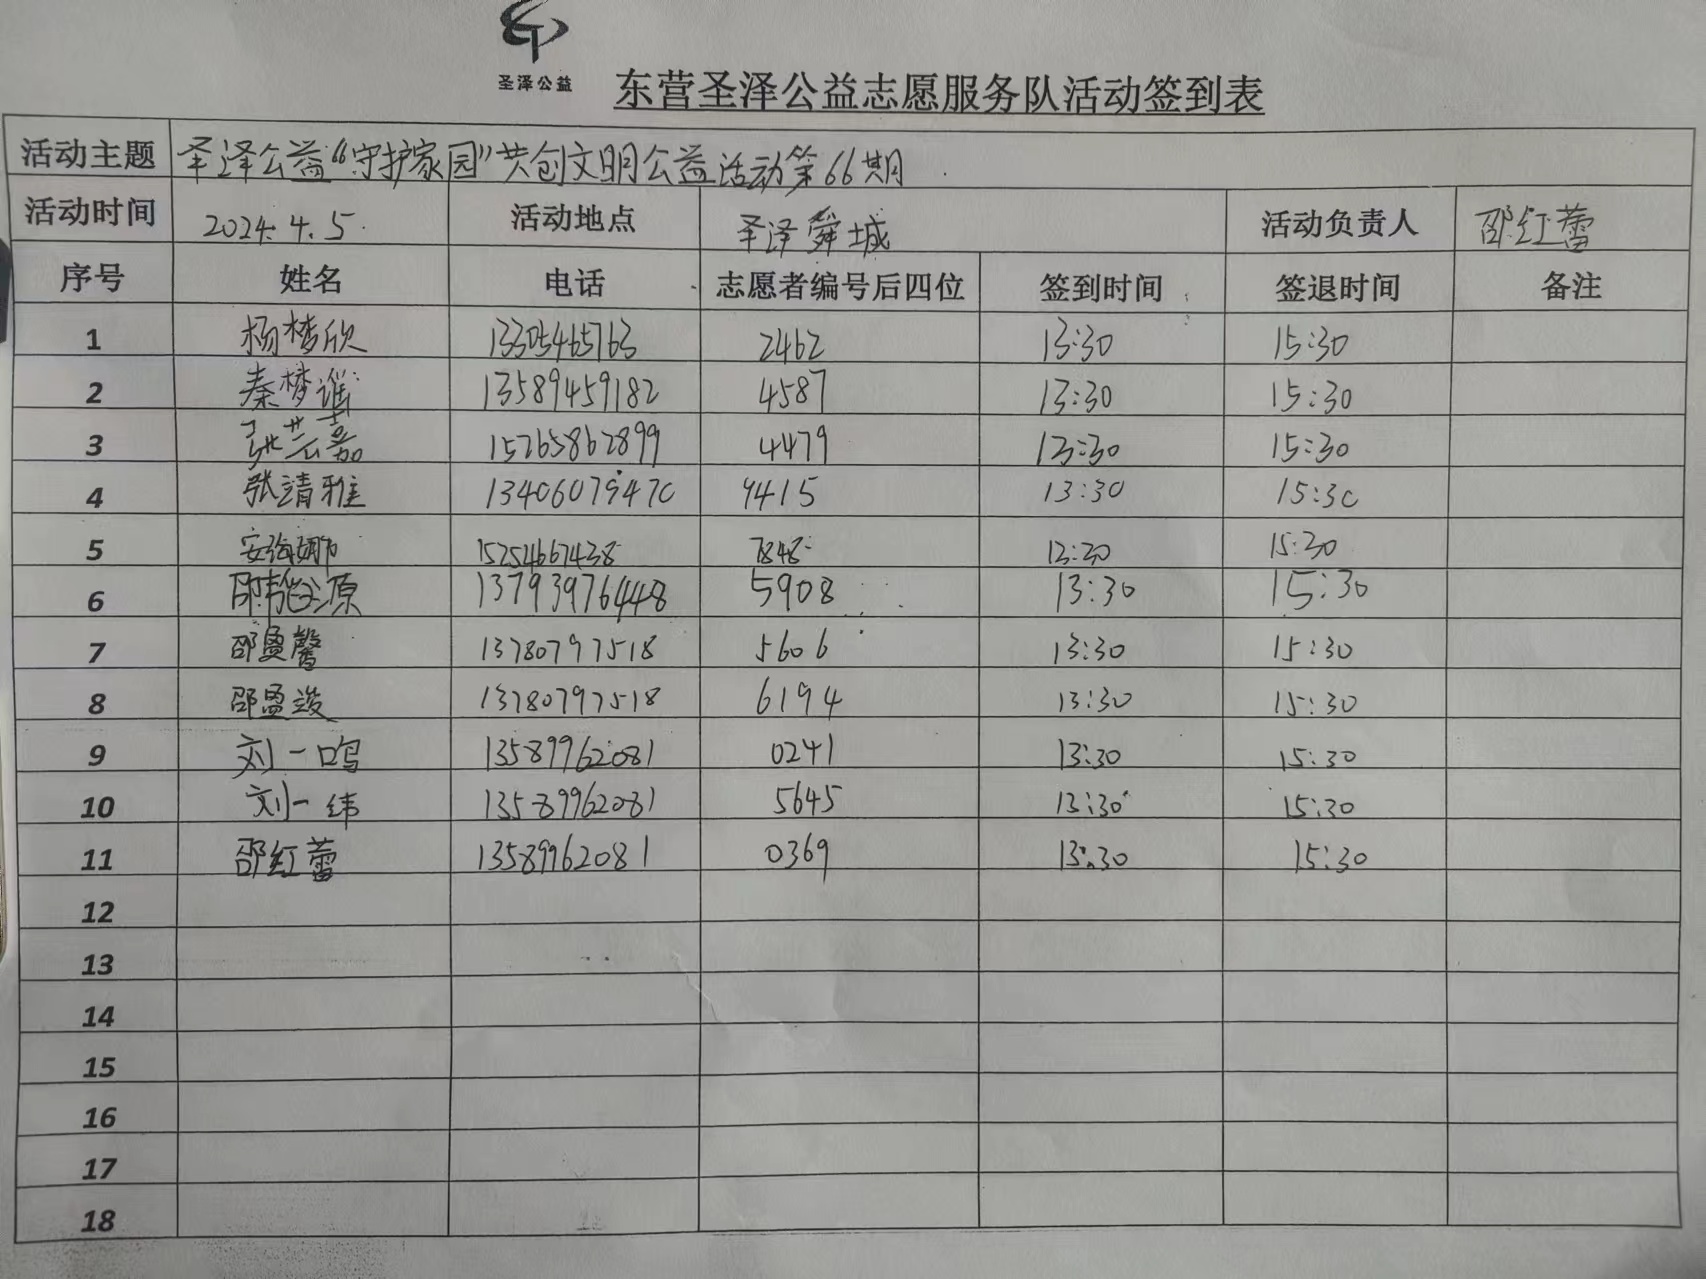 圣泽公益
东营圣泽公益志愿服务队活动签到表
活动主题 圣泽公益“守护家园”共创文明公益活动第66期
活动时间 2024.4.5. 活动地点 圣泽舜城 活动负责人 邵红蕾
序号 姓名 电话 志愿者编号后四位 签到时间 签退时间 备注
1 杨梦欣 13305465763 2462 13:30 15:30
2 秦梦谣 13589459182 4587 13:30 15:30
3 张芸嘉 15265862899 4479 13:30 15:30
4 张清雅 13406079470 9415 13:30 15:30
5 安海娜 15254667438 7848 13:30 15:30
6 邵韩谷源 13793976448 5908 13:30 15:30
7 邵盈馨 13780797518 5606 13:30 15:30
8 邵盈浚 13780797518 6194 13:30 15:30
9 刘一鸣 13589962081 0241 13:30 15:30
10 刘一纬 13589962081 5645 13:30 15:30
11 邵红蕾 13589962081 0369 13:30 15:30
12
13
14
15
16
17
18